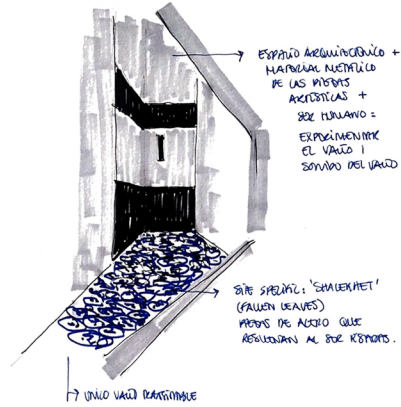 ESPACIO ARQUITECTÓNICO +
MATERIAL METÁLICO
DE LAS PIEZAS
ARTÍSTICAS +
SER HUMANO =
EXPERIMENTAR
EL VACÍO /
SONIDO DEL VACÍO
SITE SPECIFIC: 'SHALEKHET'
(FALLEN LEAVES)
PIEZAS DE ACERO QUE
RESUENAN AL SER PISADAS.
ÚNICO VACÍO TRANSITABLE